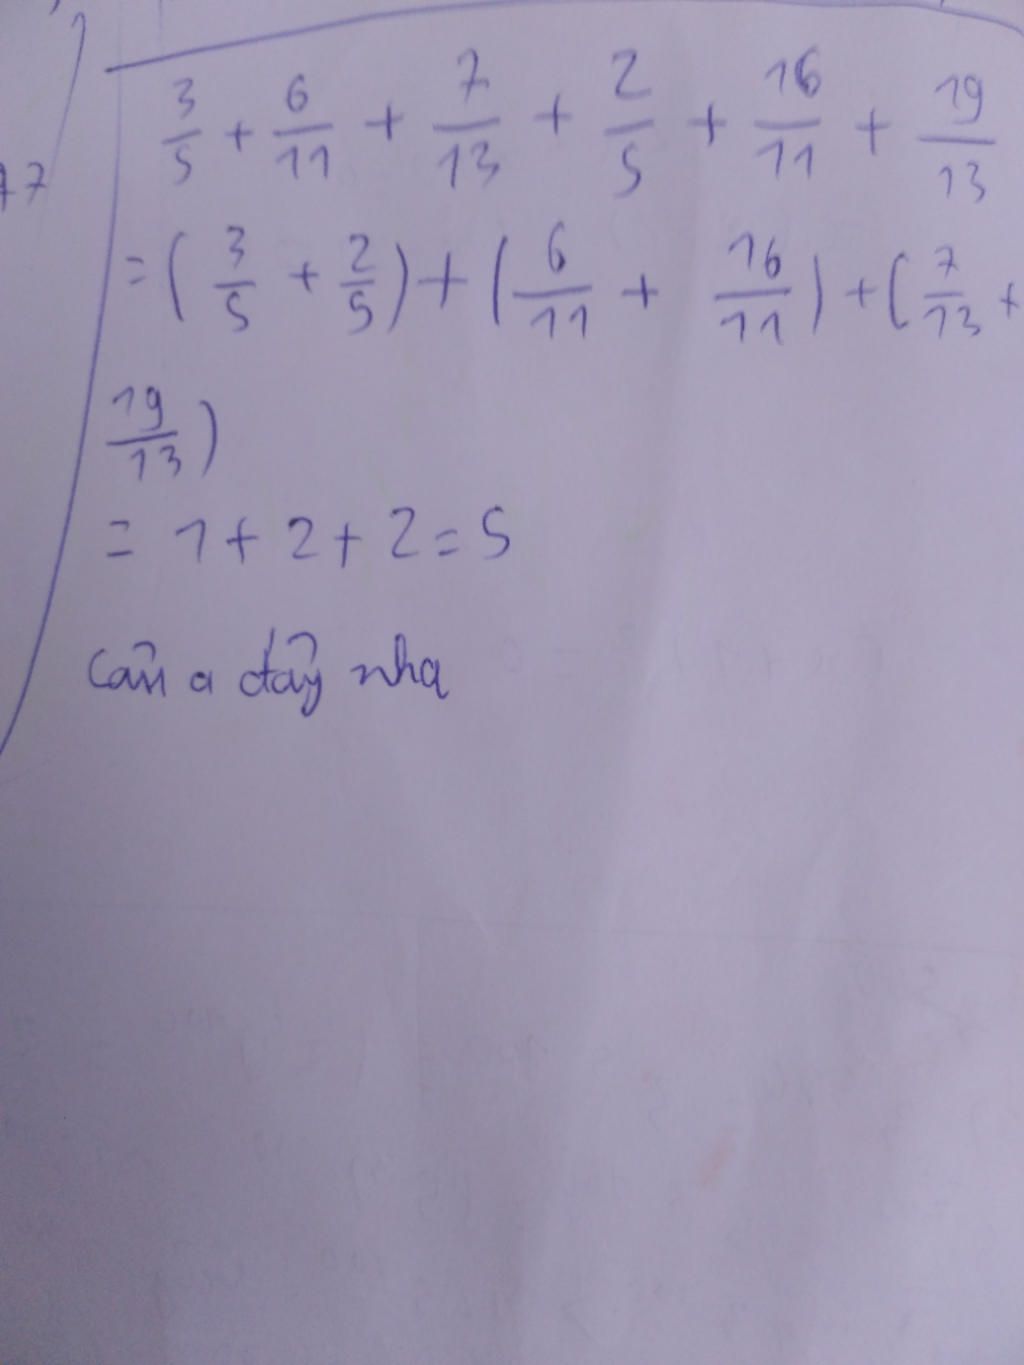 3/5 + 6/11 + 7/13 + 2/5 + 16/11 + 19/13
= ( 3/5 + 2/5 ) + ( 6/11 + 16/11 ) + ( 7/13 +
19/13 )
= 1 + 2 + 2 = 5
Câu a đây nha